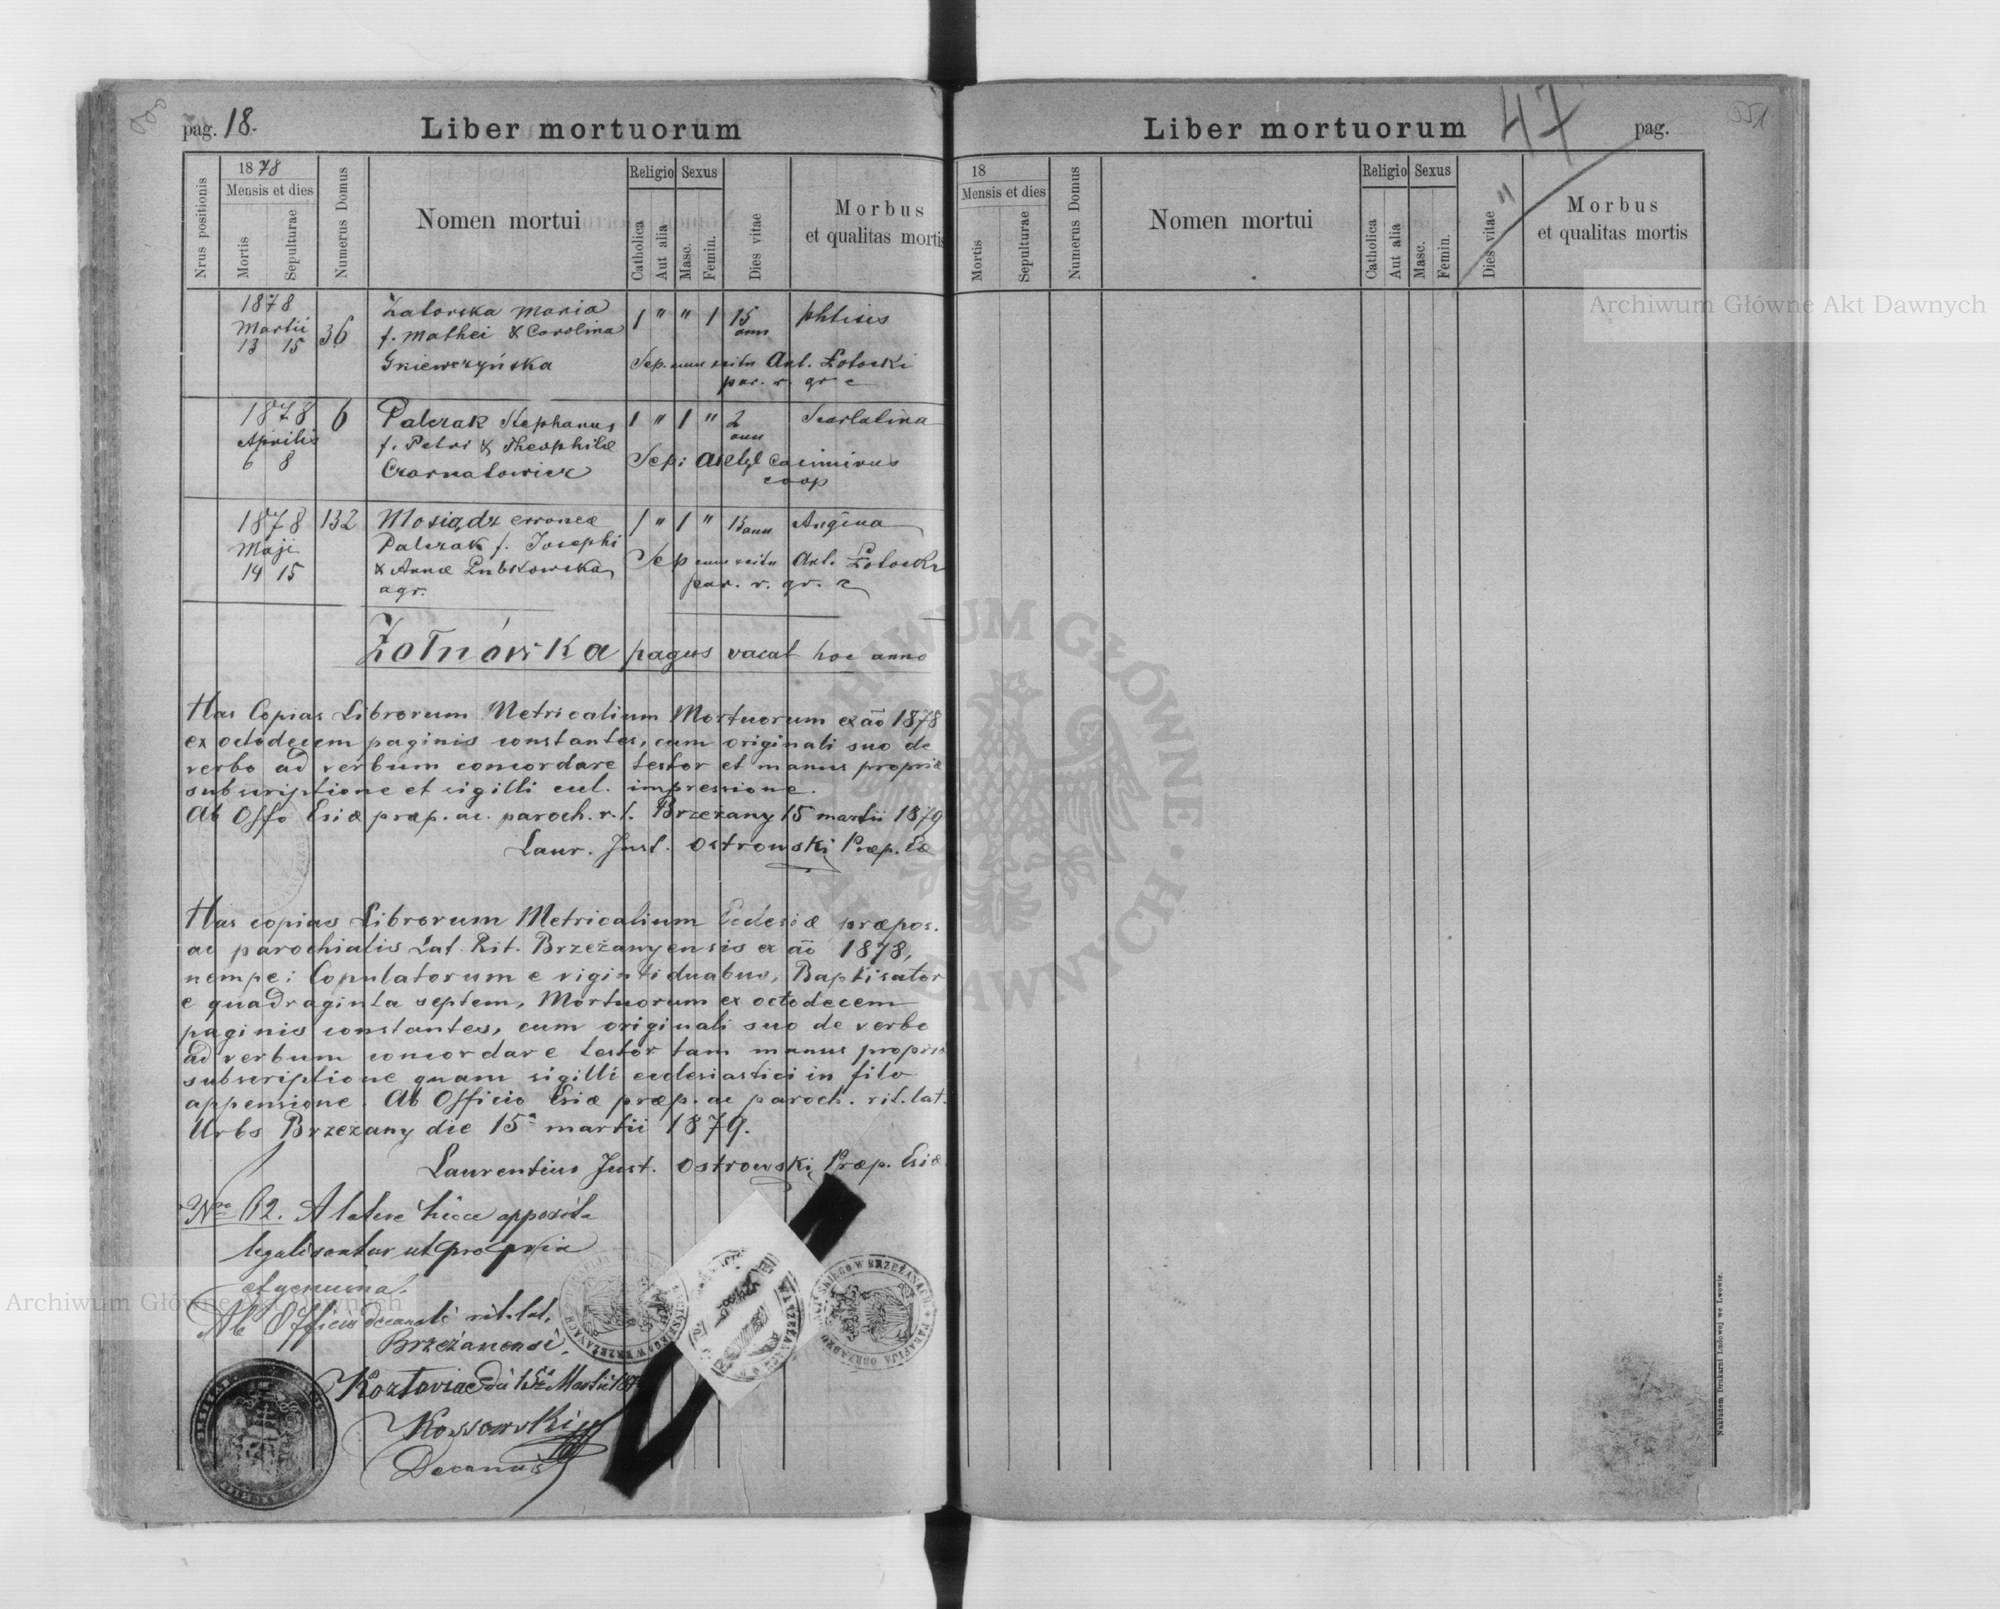 pag. 18.
Liber mortuorum
Nrus positionis
1878
Mensis et dies
Mortis
Sepulturae
Numerus Domus
Nomen mortui
Religio
Catholica
Aut alia
Sexus
Masc.
Femin.
Dies vitae
Morbus
et qualitas mortis
1878
Martii
13 15
36
Zatorska Maria
f. Mathei & Carolina
Gniewczyńska
1 " " 1 15
ann
phtisis
Sep. Ant. Łotocki
par. r. gr c
1878
Aprilis
6 8
6
Palczak Stephanus
f. Petri & Theophilæ
Czarnatowicz
1 " 1 " 2
ann
Scarlatina
Sep: Casimirus
coop
1878
Maji
14 15
132
Mosiądz erronee
Palczak f. Josephi
& Annæ
agr.
1 " 1 " 13 ann
Angina
Sep Ant. Łotocki
par. r. gr. c
Żołnówka pagus vacat hoc anno
Has Copias Librorum Metricalium Mortuorum ex aō 1878
ex octodecem paginis constantes, cum originali suo de
verbo ad verbum concordare testor et manus propriæ
subscriptione et sigilli eccl. impressione.
Ab Offo Esiæ præp. ac. paroch. r. l. Brzeżany 15 martii 1879
Laur. Just. Ostrowski Præp. Eæ
Has copias Librorum Metricalium Ecclesiæ præpos.
ac parochialis Lat. Rit. Brzeżanyensis ex aō 1878,
nempe: Copulatorum e vigintiduabus, Baptisator
e quadraginta septem, Mortuorum ex octodecem
paginis constantes, cum originali suo de verbo
ad verbum concordare testor tam manus propriæ
subscriptione quam sigilli ecclesiastici in filo
appensione. Ab Officio Esiæ præp. ac paroch. rit. lat.
Urbs Brzeżany die 15ª martii 1879.
Laurentius Just. Ostrowski Præp. Esiæ
Nro 62. A latere hicce apposita
legalisantur ut propria
et genuina.
Ab Officio Decanali rit. lat.
Brzeżanensi.
Kozłoviae
Kossowski
Decanus
Liber mortuorum
47
pag.
551
18
Mensis et dies
Mortis
Sepulturae
Numerus Domus
Nomen mortui
Religio
Catholica
Aut alia
Sexus
Masc.
Femin.
Dies vitae
Morbus
et qualitas mortis
Nakładem Drukarni Ludowej we Lwowie.
Archiwum Główne Akt Dawnych
Archiwum Główne Akt Dawnych
ARCHIWUM GŁÓWNE AKT DAWNYCH